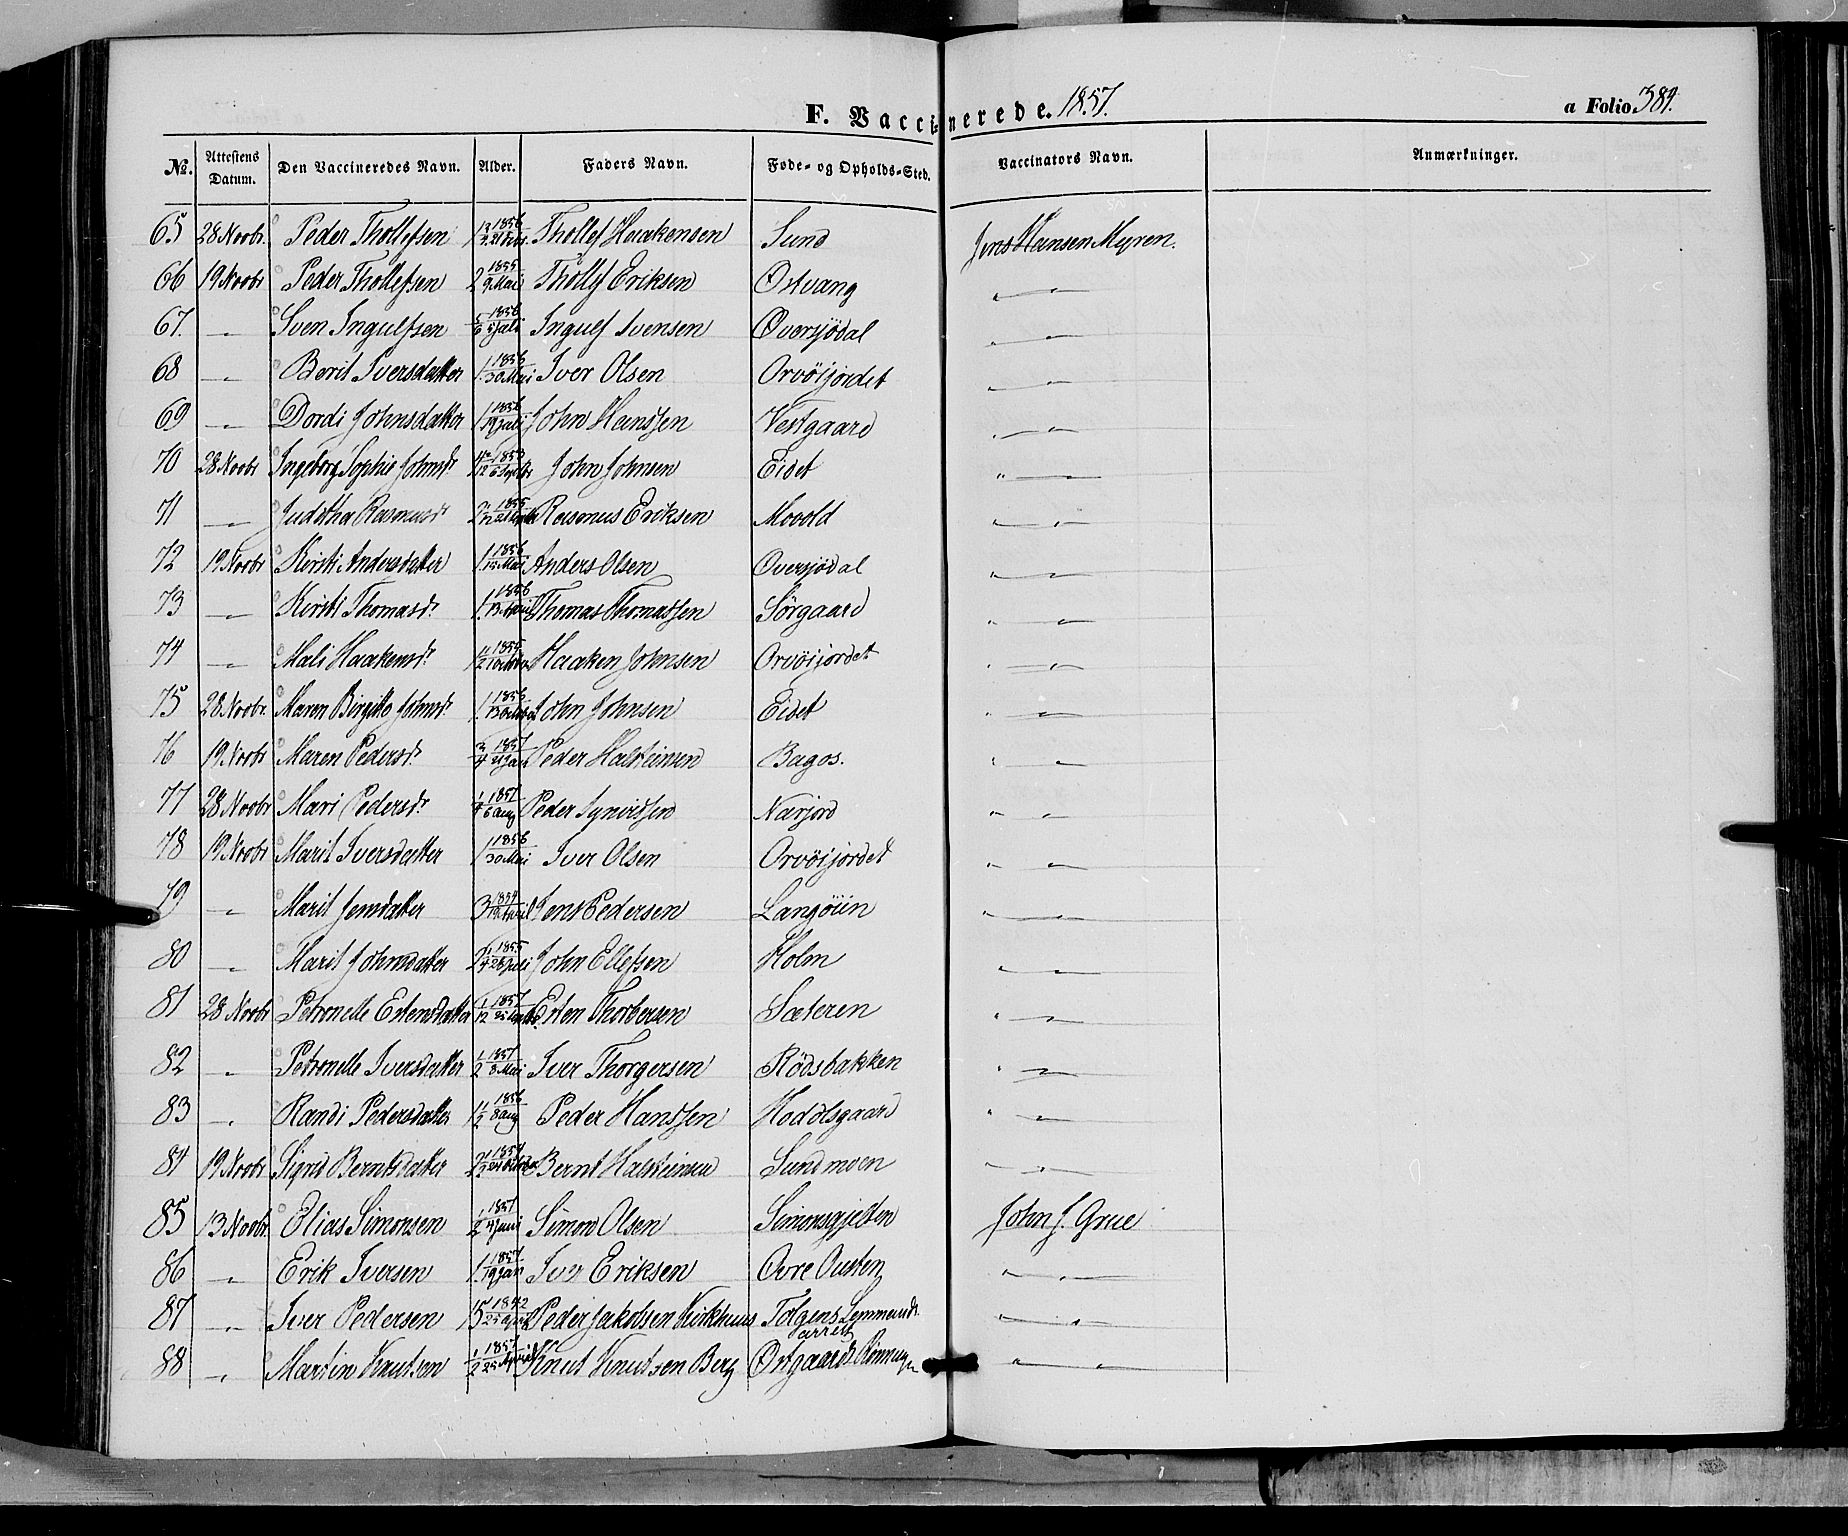 F. Vaccinerede. 1857. a Folio 384.
No. Attestens Datum. Den Vaccineredes Navn. Alder. Faders Navn. Føde- og Opholds-Sted. Vaccinators Navn. Anmærkninger.
65 28 Novbr. Peder Thollefsen 1856 Thollef Haakensen Sund Jens Hansen Myren.
66 19 Novbr Peder Thollefsen 2 1855 9 Mai Thollf Eriksen Ostvang " "
67. " Sven Ingulfsen 5/6 1856 5 juli Ingulf Svensen Oversjödal " "
68 " Berit Iversdatter 1. 1856 30 Mai Iver Olsen Orvöijordet " "
69 " Dordi Johnsdatter 1 1856 19 juli John Hanssen Vestgaard " "
70 28 Novbr Ingeborg Sophie Johnsdr 1853 6 Septbr John Johnsen Eidet " "
71 " Juditha Rasmusdr 1855 Rasmus Eriksen Movold " "
72 19 Novbr Kirsti Andersdatter 1 1856 Mai Anders Olsen Oversjödal " "
73 " Kirsti Thomasdr 1. 1856 13 April Thomas Thomassen Sörgaard " "
74 " Mali Haakensdr 1855 Haaken Johnsen Orvöijordet " "
75 28 Novbr. Maren Birgitte Johnsdr 1. 1856 John Johnsen Eidet " "
76 19 Novbr Maren Pedersdr 3/4 1857 21 jan Peder Halsteinsen Bagos. " "
77 28 Novbr Mari Pedersdr 1/4 1857 6 aug Peder Synvissen Narjord " "
78 19 Novbr Marit Iversdatter 1 1856 30 Mai Iver Olsen Orvöijordet " "
79 " Marit Jensdatter 3 1854 19 April Jens Pedersen Langöien " "
80 " Marit Johnsdatter 2 1/4 1855 28 juli John Ellefsen Holm " "
81 28 Novbr Petronelle Estensdatter 1/12 1857 Esten Thorbersen Sæteren " "
82 " Petronelle Iversdatter 1/2 1857 8 Mai Iver Thorgersen Rödsbakken " "
83 " Randi Pedersdatter 1 1/2 1856 8 aug Peder Hanssen Hoddlsgaard " "
84 19 Novbr Sigrid Berntsdatter 1854 Bernt Halsteinsen Sundmoen " "
85 13 Novbr. Elias Simonsen 1/2 1857 4 juni Simon Olsen Simensgjelten John J. Grue
86 " Erik Iversen 1. 1857 19 jan Iver Eriksen Ovre Ousten " "
87 " Iver Pedersen 15 1842 25 April Peder Jakobsen Kirkhuus Tolgens Lemmands
arrest " "
88 " Martin Knutsen 1/2 1857 25 April Knut Knutsen Berg Ostgaards Rönningen " "